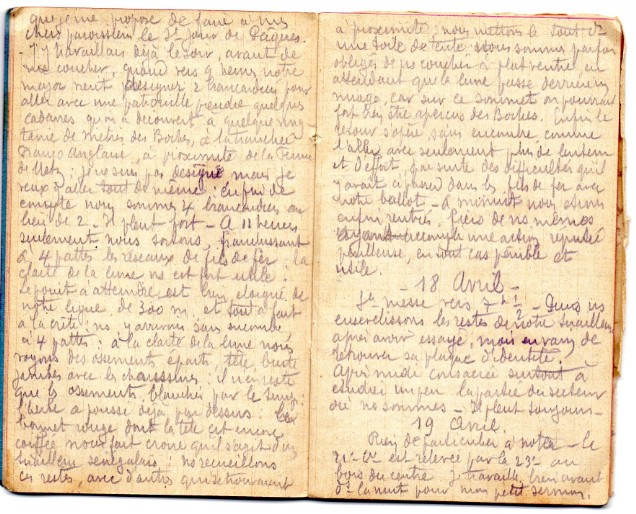 que je me propose de faire à mes
chers paroissiens le St Jour de Pâques.
- J'y travaillais déjà le soir, avant de
me coucher, quand vers 9 heures notre
major vient désigner 2 brancardiers pour
aller avec une patrouille prendre quelques
cadavres qu'on a découvert à quelque cinquan
taine de mètres des Boches, à la tranchée
Franco Anglaise, à proximité de la Ferme
de Metz; je ne suis pas désigné mais je
veux y aller tout de même: en fin de
compte nous sommes 4 brancardiers au
lieu de 2. Il pleut fort - A 11 heures
seulement nous sortons, franchissant
à 4 pattes les réseaux de fils de fer: la
clarté de la lune ns est fort utile:
le point à atteindre est bien éloigné de
notre ligne de 300 m. et tout à fait
à la crête: ns y arrivons sans encombre
à 4 pattes: à la clarté de la lune nous
voyons des ossements épars: tête, buste
jambes avec les chaussures: il ne reste
que les ossements blanchis par le temps,
l'herbe a poussé déjà par dessus: Le
bonnet rouge dont la tête est encore
coiffée nous fait croire qu'il s'agit d'un
tirailleur sénégalais: ns recueillons
ces restes, avec d'autres qui se trouvaient
à proximité: nous mettons le tout ds
une toile de tente: nous sommes parfois
obligés de ns coucher à plat ventre, en
attendant que la lune passe derrière un
nuage, car sur ce sommet on pourrait
fort bien être aperçus des Boches. Enfin le
retour s'opère sans encombre, comme
l'aller avec seulement plus de lenteur
et d'effort, par suite des difficultés qu'il
y avait à passer dans les fils de fer avec
notre ballot - A minuit nous étions
enfin rentrés, fiers de ns mêmes
ayant accompli une action réputée
périlleuse, en tout cas pénible et
utile.
- 18 Avril -
Ste messe vers 7h 1/2 - Puis ns
ensevelissons les restes de notre tirailleur
après avoir essayé, mais en vain, de
retrouver sa plaque d'identité.
Après midi consacrée surtout à
étudier un peu la partie du secteur
où ns sommes - Il pleut toujours -
19 Avril.
Rien de particulier à noter - la
21e Cie est relevée par la 23e au
bois du centre. Je travaille, bien avant
ds la nuit pour mon petit sermon.